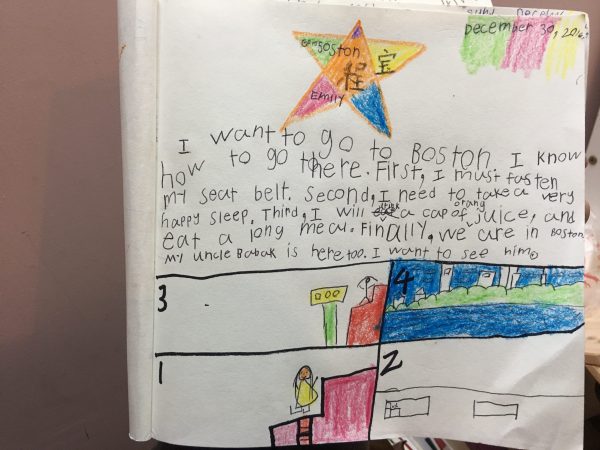 December 30,
BOSTON
宝
Emily
I want to go to Boston. I know
how to go there. First, I must fasten
my seat belt. Second, I need to take a very
happy sleep. Third, I will drink a cap of orang juice, and
eat a long meal. Finally, we are in Boston
my uncle Babak is here too. I want to see him.
3
4
1
2